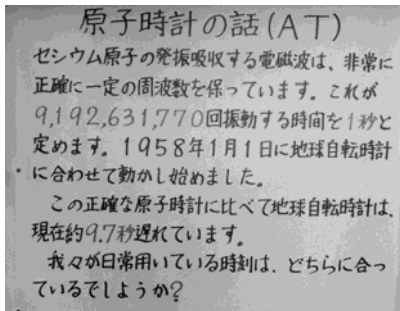 原子時計の話(AT)
セシウム原子の発振吸収する電磁波は、非常に
正確に一定の周波数を保っています。これが
9,192,631,770回振動する時間を1秒と
定めます。1958年1月1日に地球自転時計
に合わせて動かし始めました。
この正確な原子時計に比べて地球自転時計は、
現在約9.7秒遅れています。
我々が日常用いている時刻は、どちらに合っ
ているでしようか?